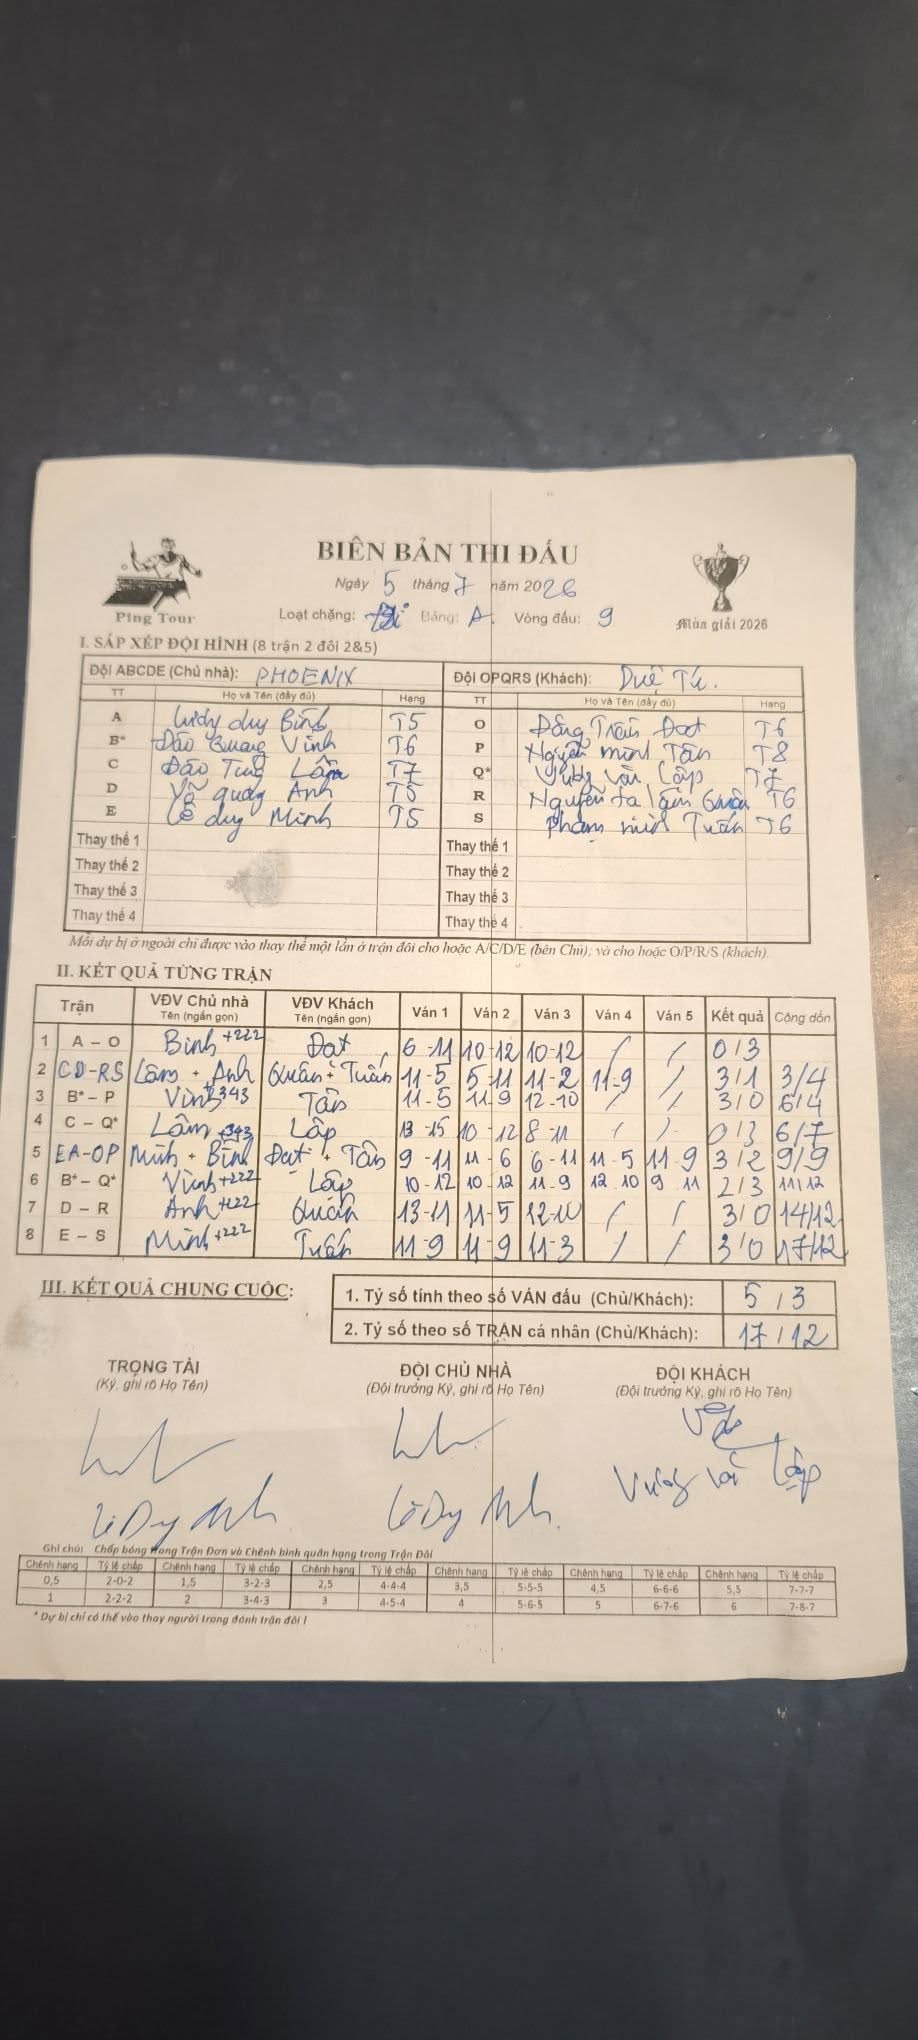 BIÊN BẢN THI ĐẤU
Ngày 5 tháng 7 năm 2026
Ping Tour
Loạt chặng: Đội Bảng: A Vòng đấu: 9
Mùa giải 2026
I. SẮP XẾP ĐỘI HÌNH (8 trận 2 đôi 2&5)
Đội ABCDE (Chủ nhà): PHOENIX Đội OPQRS (Khách): Duệ Tú.
TT Họ và Tên (đầy đủ) Hạng TT Họ và Tên (đầy đủ) Hạng
A duy Bình T5 O Đặng Trần Đạt T6
B* Đào Quang Vinh T6 P Nguyễn minh Tân T8
C Đào Tùng Lâm T7 Q* Vương văn Lập T7
D Võ quang Anh T5 R Nguyễn tạ lâm Quân T6
E Lê duy Minh T5 S Phạm minh Tuấn T6
Thay thế 1 Thay thế 1
Thay thế 2 Thay thế 2
Thay thế 3 Thay thế 3
Thay thế 4 Thay thế 4
Mỗi dự bị ở ngoài chỉ được vào thay thế một lần ở trận đôi cho hoặc A/C/D/E (bên Chủ); và cho hoặc O/P/R/S (khách).
II. KẾT QUẢ TỪNG TRẬN
Trận VĐV Chủ nhà VĐV Khách Ván 1 Ván 2 Ván 3 Ván 4 Ván 5 Kết quả Cộng dồn
Tên (ngắn gọn) Tên (ngắn gọn)
1 A – O Bình +222 Đạt 6 -11 10-12 10-12 / / 0/3
2 CD-RS Lâm + Anh Quân + Tuấn 11-5 5-11 11-2 11-9 / 3/1 3/4
3 B* – P Vinh 343 Tân 11-5 11-9 12-10 / / 3/0 6/4
4 C – Q* Lâm +343 Lập 13-15 10-12 8-11 / / 0/3 6/7
5 EA-OP Minh + Bình Đạt + Tân 9-11 11-6 6-11 11-5 11-9 3/2 9/9
6 B* – Q* Vinh +222 Lập 10-12 10-12 11-9 12 10 9 11 2/3 11/12
7 D – R Anh +122 Quân 13-11 11-5 12-10 / / 3/0 14/12
8 E – S Minh +222 Tuấn 11-9 11-9 11-3 / / 3/0 17/12
III. KẾT QUẢ CHUNG CUỘC:
1. Tỷ số tính theo số VÁN đấu (Chủ/Khách): 5 / 3
2. Tỷ số theo số TRẬN cá nhân (Chủ/Khách): 17 / 12
TRỌNG TÀI ĐỘI CHỦ NHÀ ĐỘI KHÁCH
(Ký, ghi rõ Họ Tên) (Đội trưởng Ký, ghi rõ Họ Tên) (Đội trưởng Ký, ghi rõ Họ Tên)
Lê Duy Minh Lê Duy Minh. Vương văn Lập
Ghi chú: Chấp bóng trong Trận Đơn và Chênh bình quân hạng trong Trận Đôi
Chênh hạng Tỷ lệ chấp Chênh hạng Tỷ lệ chấp Chênh hạng Tỷ lệ chấp Chênh hạng Tỷ lệ chấp Chênh hạng Tỷ lệ chấp Chênh hạng Tỷ lệ chấp
0,5 2-0-2 1,5 3-2-3 2,5 4-4-4 3,5 5-5-5 4,5 6-6-6 5,5 7-7-7
1 2-2-2 2 3-4-3 3 4-5-4 4 5-6-5 5 6-7-6 6 7-8-7
* Dự bị chỉ có thể vào thay người trong đánh trận đôi !